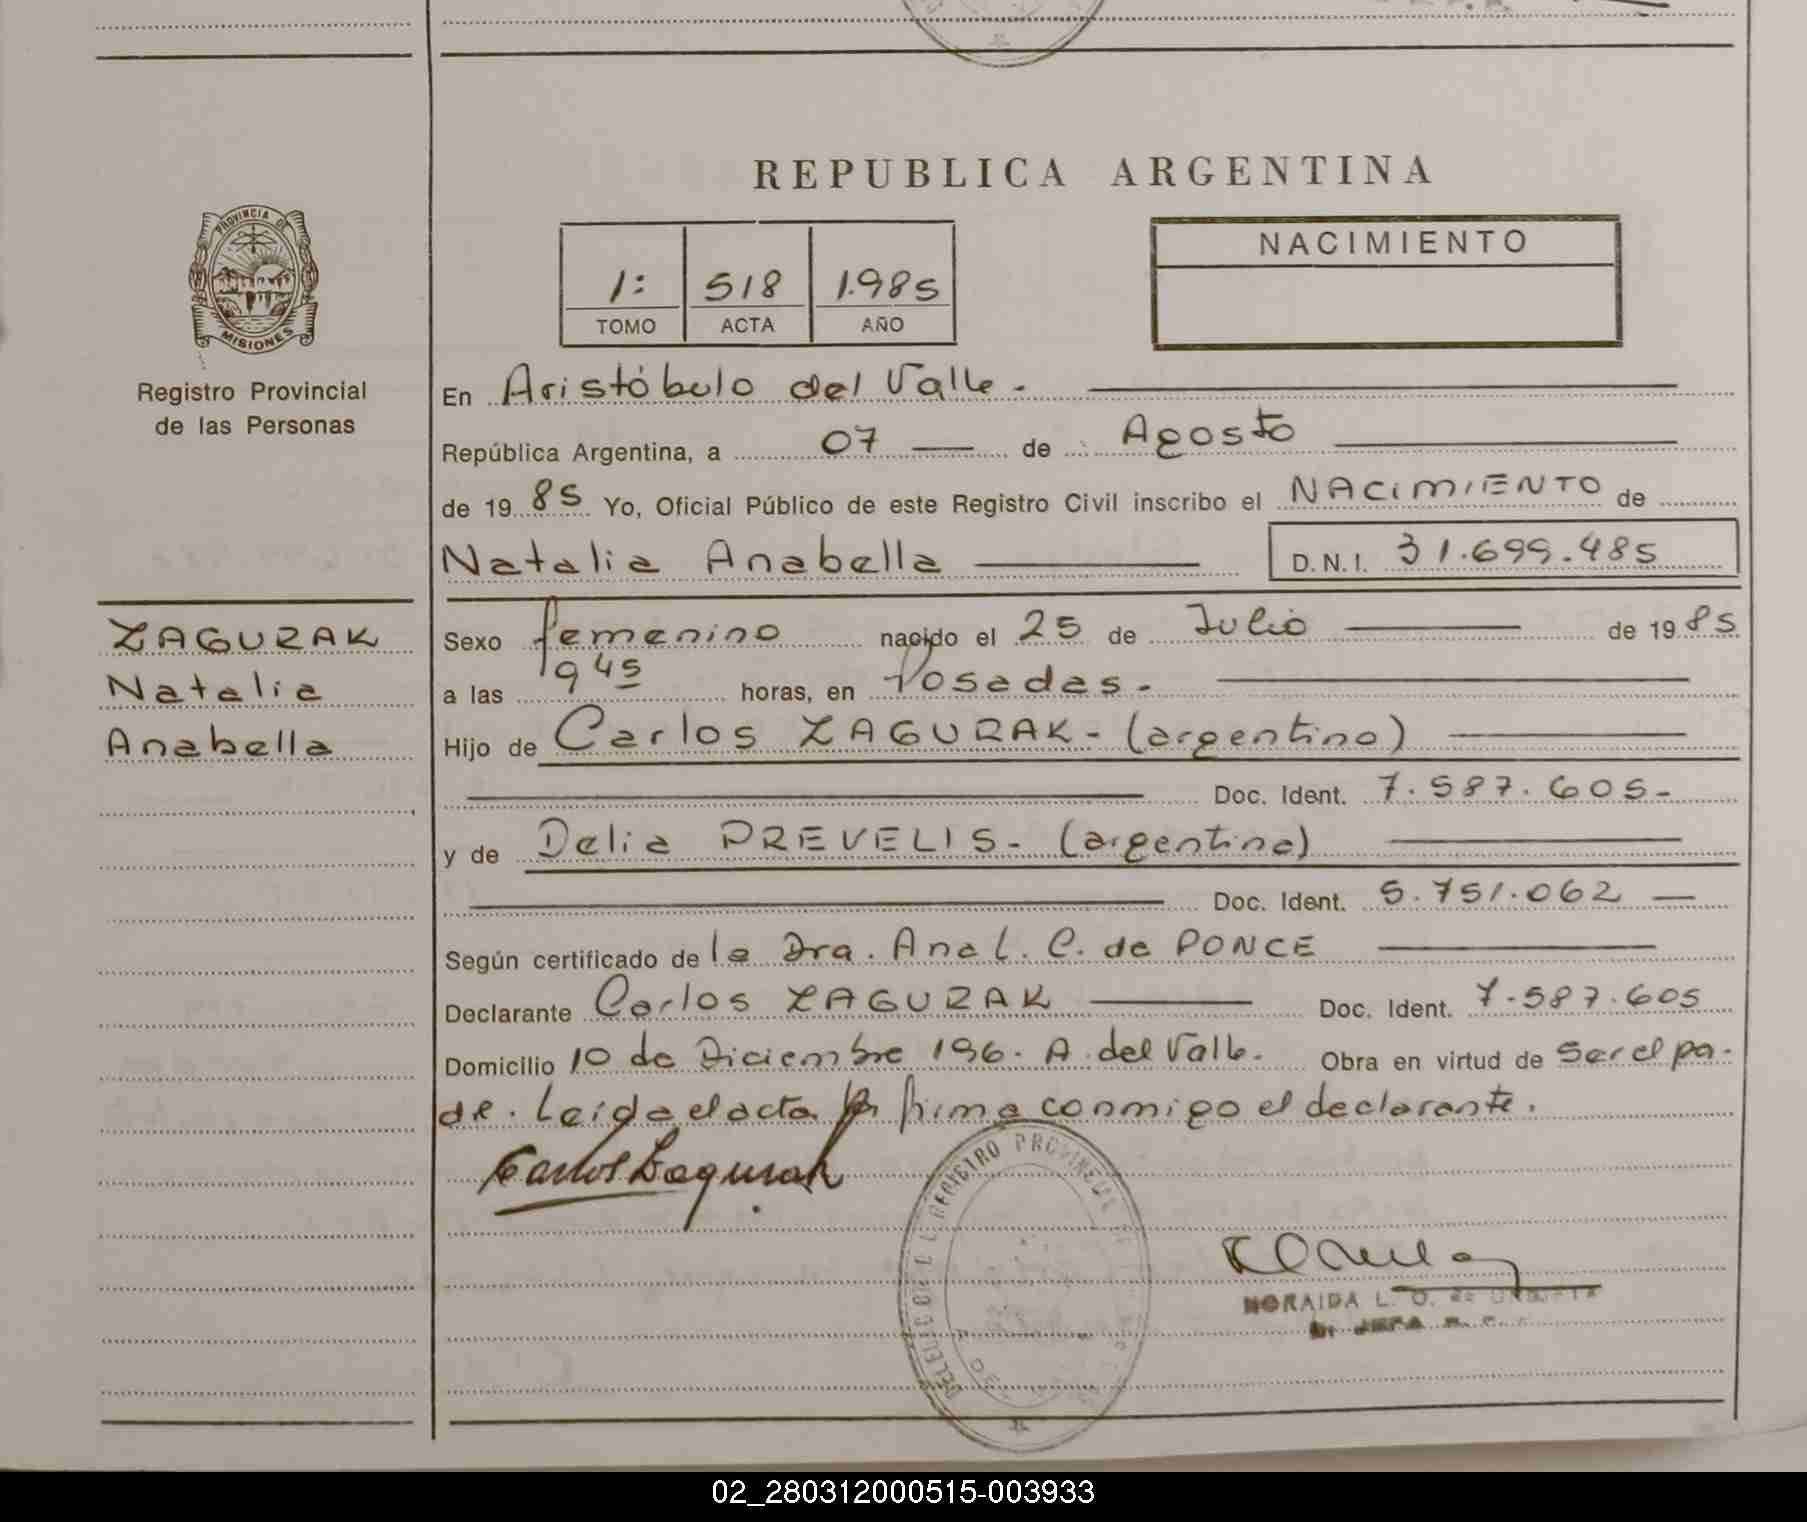 REPUBLICA ARGENTINA
PROVINCIA DE
MISIONES
Registro Provincial
de las Personas
1: 518 1.985
TOMO ACTA AÑO
NACIMIENTO
En Aristóbulo del Valle.
República Argentina, a 07 de Agosto
de 1985 Yo, Oficial Público de este Registro Civil inscribo el NACIMIENTO de
Natalia Anabella D.N.I. 31.699.485
ZAGURAK
Natalia
Anabella
Sexo femenino nacido el 25 de Julio de 1985
a las 945 horas, en Posadas.
Hijo de Carlos ZAGURAK - (argentino)
Doc. Ident. 7.587.605-
y de Delia PREVELIS. - (argentina)
Doc. Ident. 5.751.062
Según certificado de la Dra. Ana L. C. de PONCE
Declarante Carlos ZAGURAK Doc. Ident. 7.587.605
Domicilio 10 de Diciembre 196. A. del Valle. Obra en virtud de ser el pa-
de. Leída el acta firma conmigo el declarante.
Carlos Zagurak
REGISTRO PROVINCIAL DE
NORAIDA L. O. de
JEFA R. C.
02_280312000515-003933